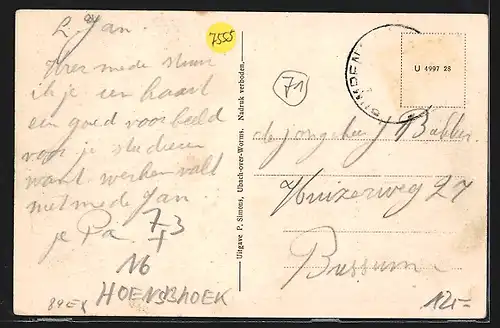 L. Jan.
Hier mede stuur
ik je een kaart
een goed voorbeeld
voor je studieren
want werken valt
niet mede Jan.
je Pa
73
16
HOENSBROEK
89EX
7555
Uitgave P. Simons, Ubach-over-Worms. Nadruk verboden.
71
U 4997 28
de jongeheer J Bakker
Huizerweg 27
Bussum
12,=